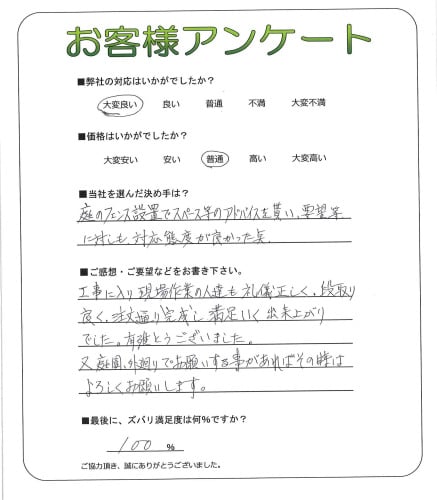 お客様アンケート
■弊社の対応はいかがでしたか?
大変良い 良い 普通 不満 大変不満
■価格はいかがでしたか?
大変安い 安い 普通 高い 大変高い
■当社を選んだ決め手は?
庭のフェンス設置でスペース等のアドバイスを貰い、要望等
に対しも対応態度が良かった点
■ご感想・ご要望などをお書き下さい。
工事に入り現場作業の人達も礼儀正しく、段取り
良く、注文通り完成し満足いく出来上がり
でした。有難とうございました。
又庭園、外廻りでお願いする事があればその時は
よろしくお願いします。
■最後に、ズバリ満足度は何%ですか?
100 %
ご協力頂き、誠にありがとうございました。